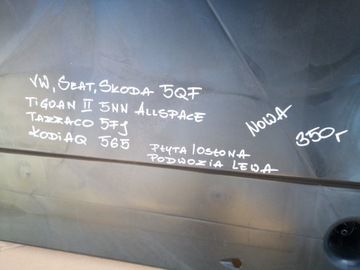 VW, SEAT, SKODA 5QF
TIGUAN II 5NN ALLSPACE
TARRACO 5FJ
KODIAQ 565
PŁYTA/OSŁONA
PODWOZIA LEWA
NOWA
350,-